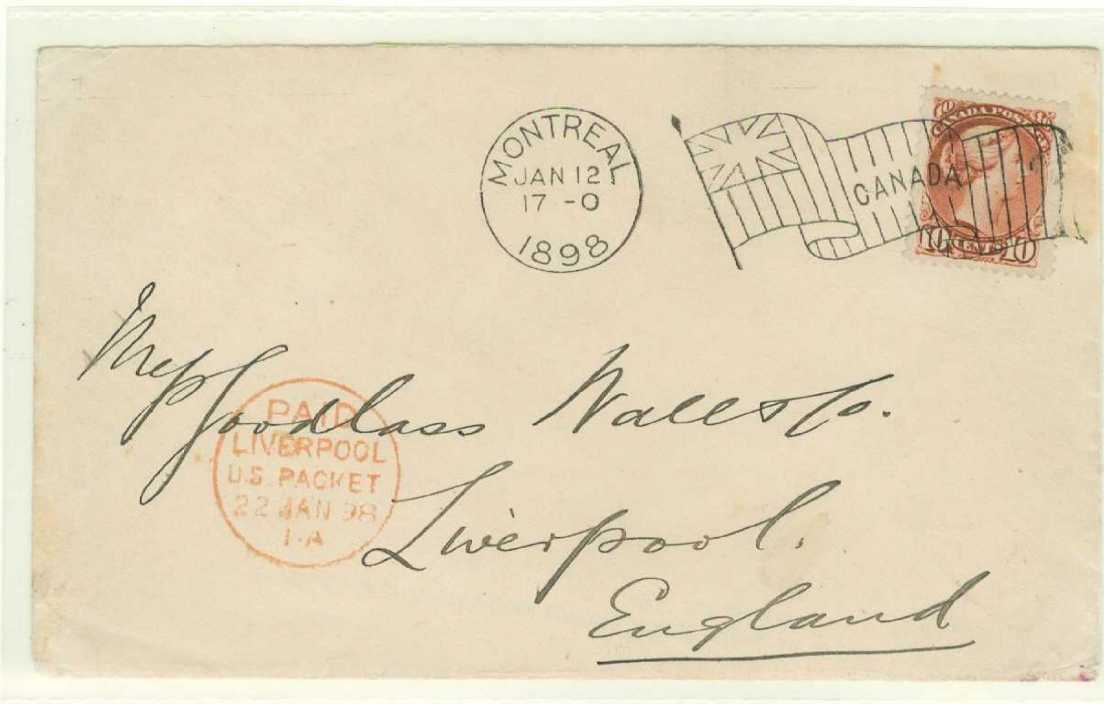 MONTREAL
JAN 12
17-0
1898
CANADA
CANADA POSTAGE
10 CENTS 10
Mess Goodlass Wall & Co.
Liverpool.
England
PAID
LIVERPOOL
U.S. PACKET
22 JAN 98
1·A